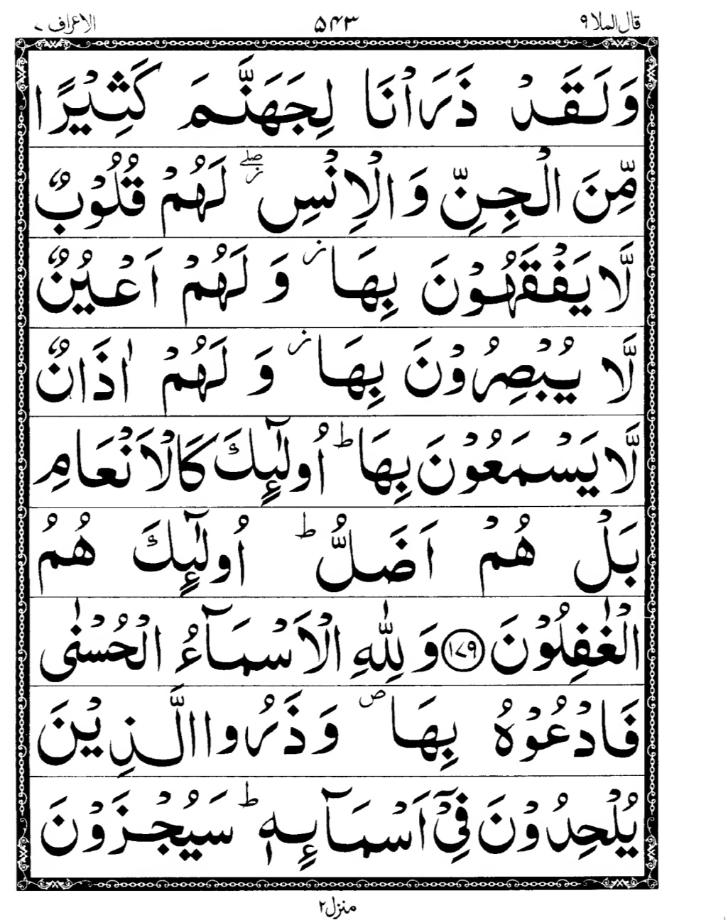 قال الملا ٩ ۵۴۳ الاعراف ٧
وَلَقَدْ ذَرَاْنَا لِجَهَنَّمَ كَثِيْرًا
مِّنَ الْجِنِّ وَالْاِنْسِ ۖ لَهُمْ قُلُوْبٌ
لَّا يَفْقَهُوْنَ بِهَا ز وَلَهُمْ اَعْيُنٌ
لَّا يُبْصِرُوْنَ بِهَا ز وَلَهُمْ اٰذَانٌ
لَّا يَسْمَعُوْنَ بِهَا ؕ اُولٰٓئِكَ كَالْاَنْعَامِ
بَلْ هُمْ اَضَلُّ ؕ اُولٰٓئِكَ هُمُ
الْغٰفِلُوْنَ ﴿۱۷۹﴾ وَلِلّٰهِ الْاَسْمَآءُ الْحُسْنٰى
فَادْعُوْهُ بِهَا ص وَذَرُوا الَّذِيْنَ
يُلْحِدُوْنَ فِيْٓ اَسْمَآئِهٖ ؕ سَيُجْزَوْنَ
منزل ٢